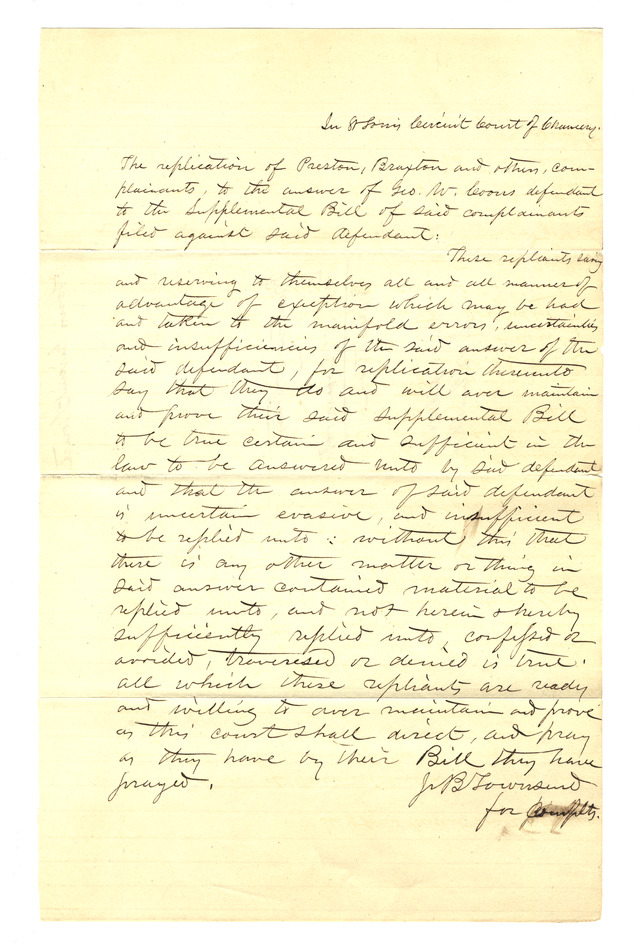 In St Louis Circuit Court of Chancery.
The replication of Preston, Braxton and others, com-
plainants, to the answer of Geo. W. Coons defendant
to the Supplemental Bill of said complainants
filed against said defendant:
These repliants saving
and reserving to themselves all and all manner of
advantage of exception which may be had
and taken to the manifold errors, uncertainties
and insufficiencies of the said answer of the
said defendant, for replication thereunto
say that they do and will aver maintain
and prove their said Supplemental Bill
to be true certain and sufficient in the
law to be answered unto by said defendant
and that the answer of said defendant
is uncertain evasive, and insufficient
to be replied unto: without this that
there is any other matter or thing in
said answer contained material to be
replied unto, and not herein & hereby
sufficiently replied unto, confessed or
avoided, traveresed or denied is true.
all which these repliants are ready
and willing to aver maintain and prove
as this court shall direct, and pray
as they have by their Bill they have
prayed.
J B Townsend
for Complts.